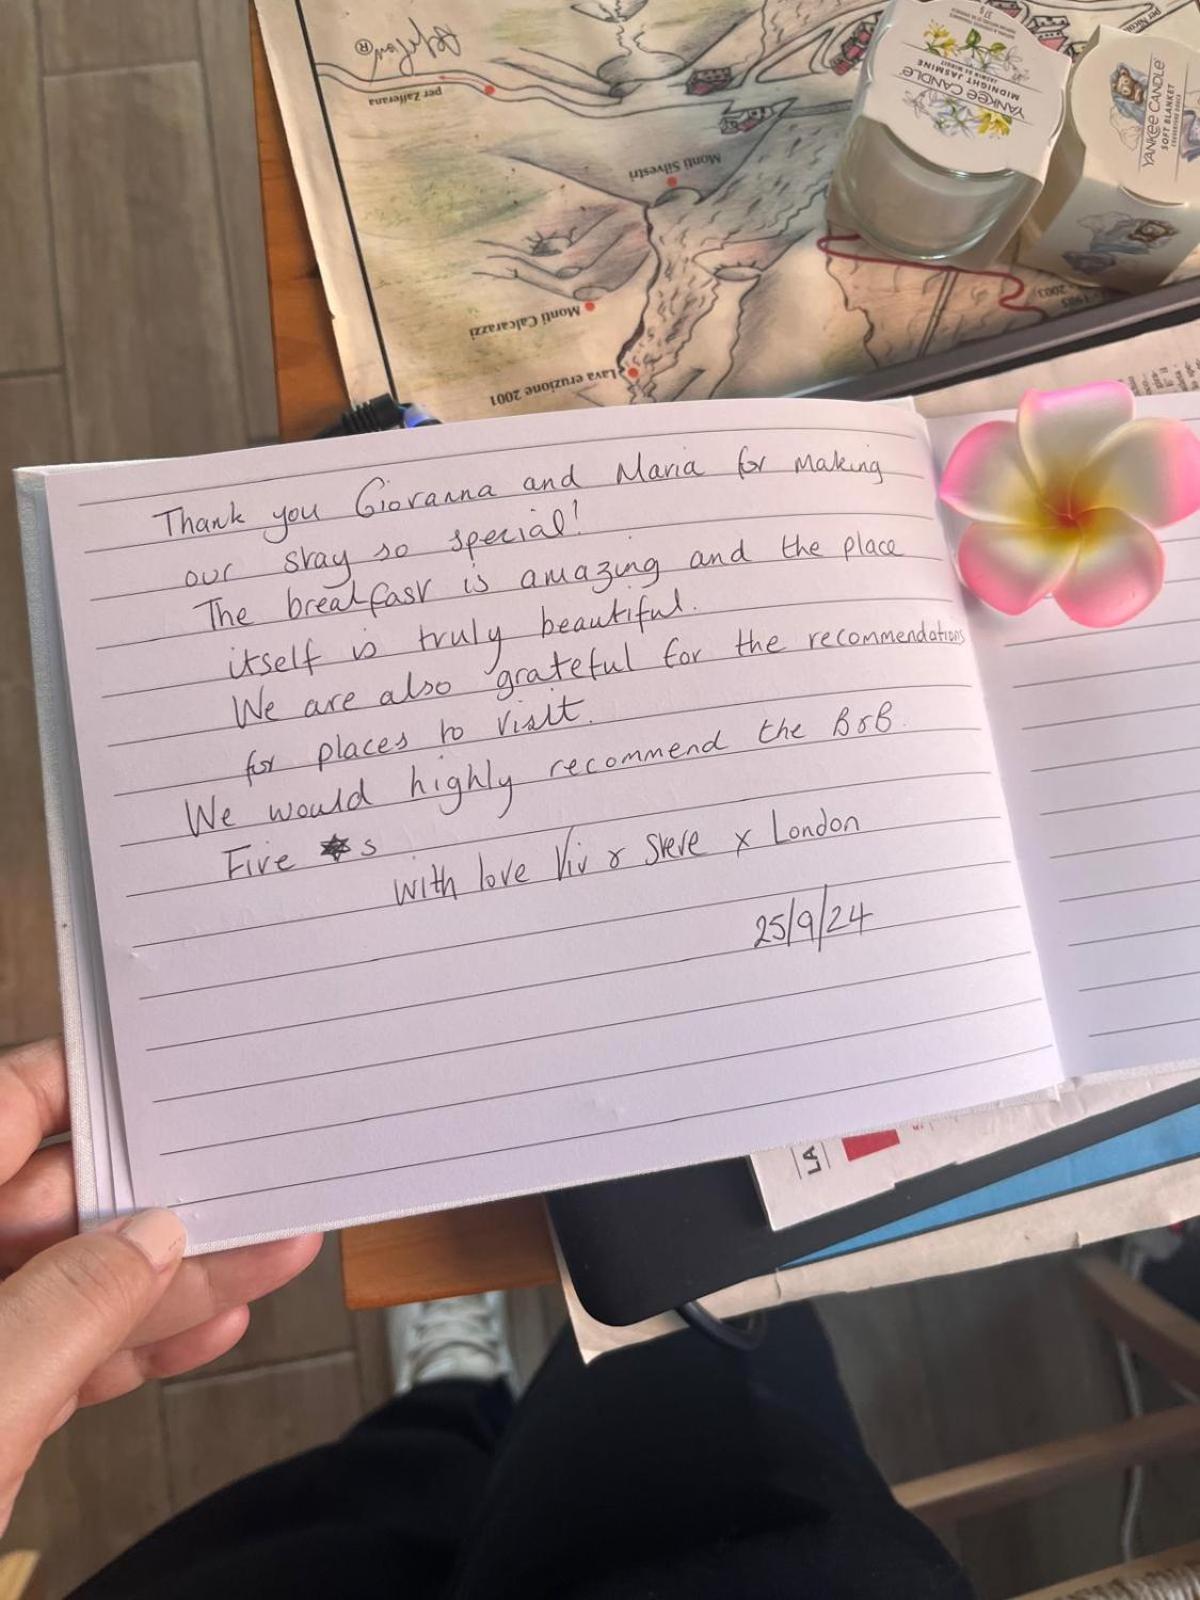 Defelan®
per Zafferana
Monti Silvestri
Monti Calcarazzi
Lava eruzione 2001
per Nicol
1985
2003)
YANKEE CANDLE
MIDNIGHT JASMINE
37 g
YANKEE CANDLE®
SOFT BLANKET
Thank you Giovanna and Maria for making
our stay so special!
The breakfast is amazing and the place
itself is truly beautiful.
We are also grateful for the recommendations
for places to visit.
We would highly recommend the B&B.
Five ★s
with love Viv & Steve x London
25/9/24
LA